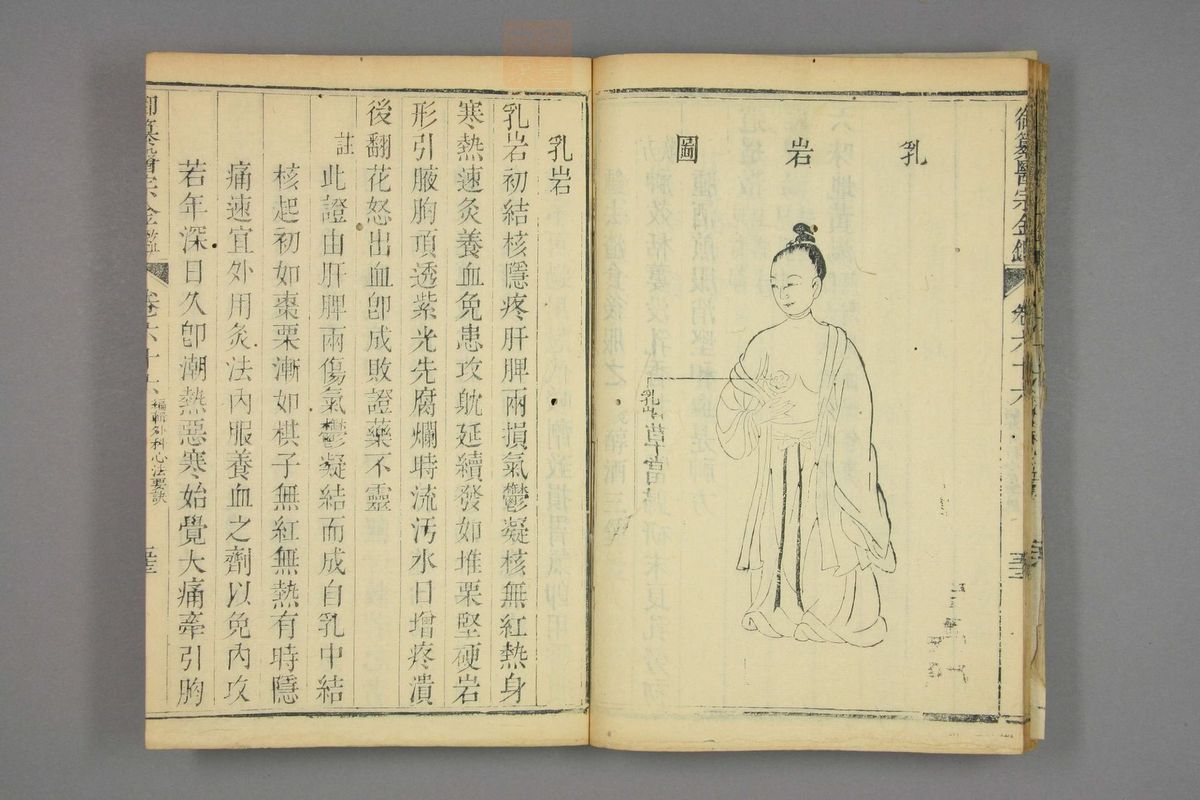 御纂醫宗金鑑
卷六十六
乳岩圖
乳岩
乳岩
乳岩初結核隱疼肝脾兩損氣鬱凝核無紅熱身
寒熱速灸養血免患攻躭延續發如堆栗堅硬岩
形引腋胸頂透紫光先腐爛時流汚水日增疼潰
後翻花怒出血卽成敗證藥不靈
註
此證由肝脾兩傷氣鬱凝結而成自乳中結
核起初如棗栗漸如棋子無紅無熱有時隱
痛速宜外用灸法內服養血之劑以免內攻
若年深日久卽潮熱惡寒始覺大痛牽引胸
御纂醫宗金鑑
卷六十六
編輯外科心法要訣